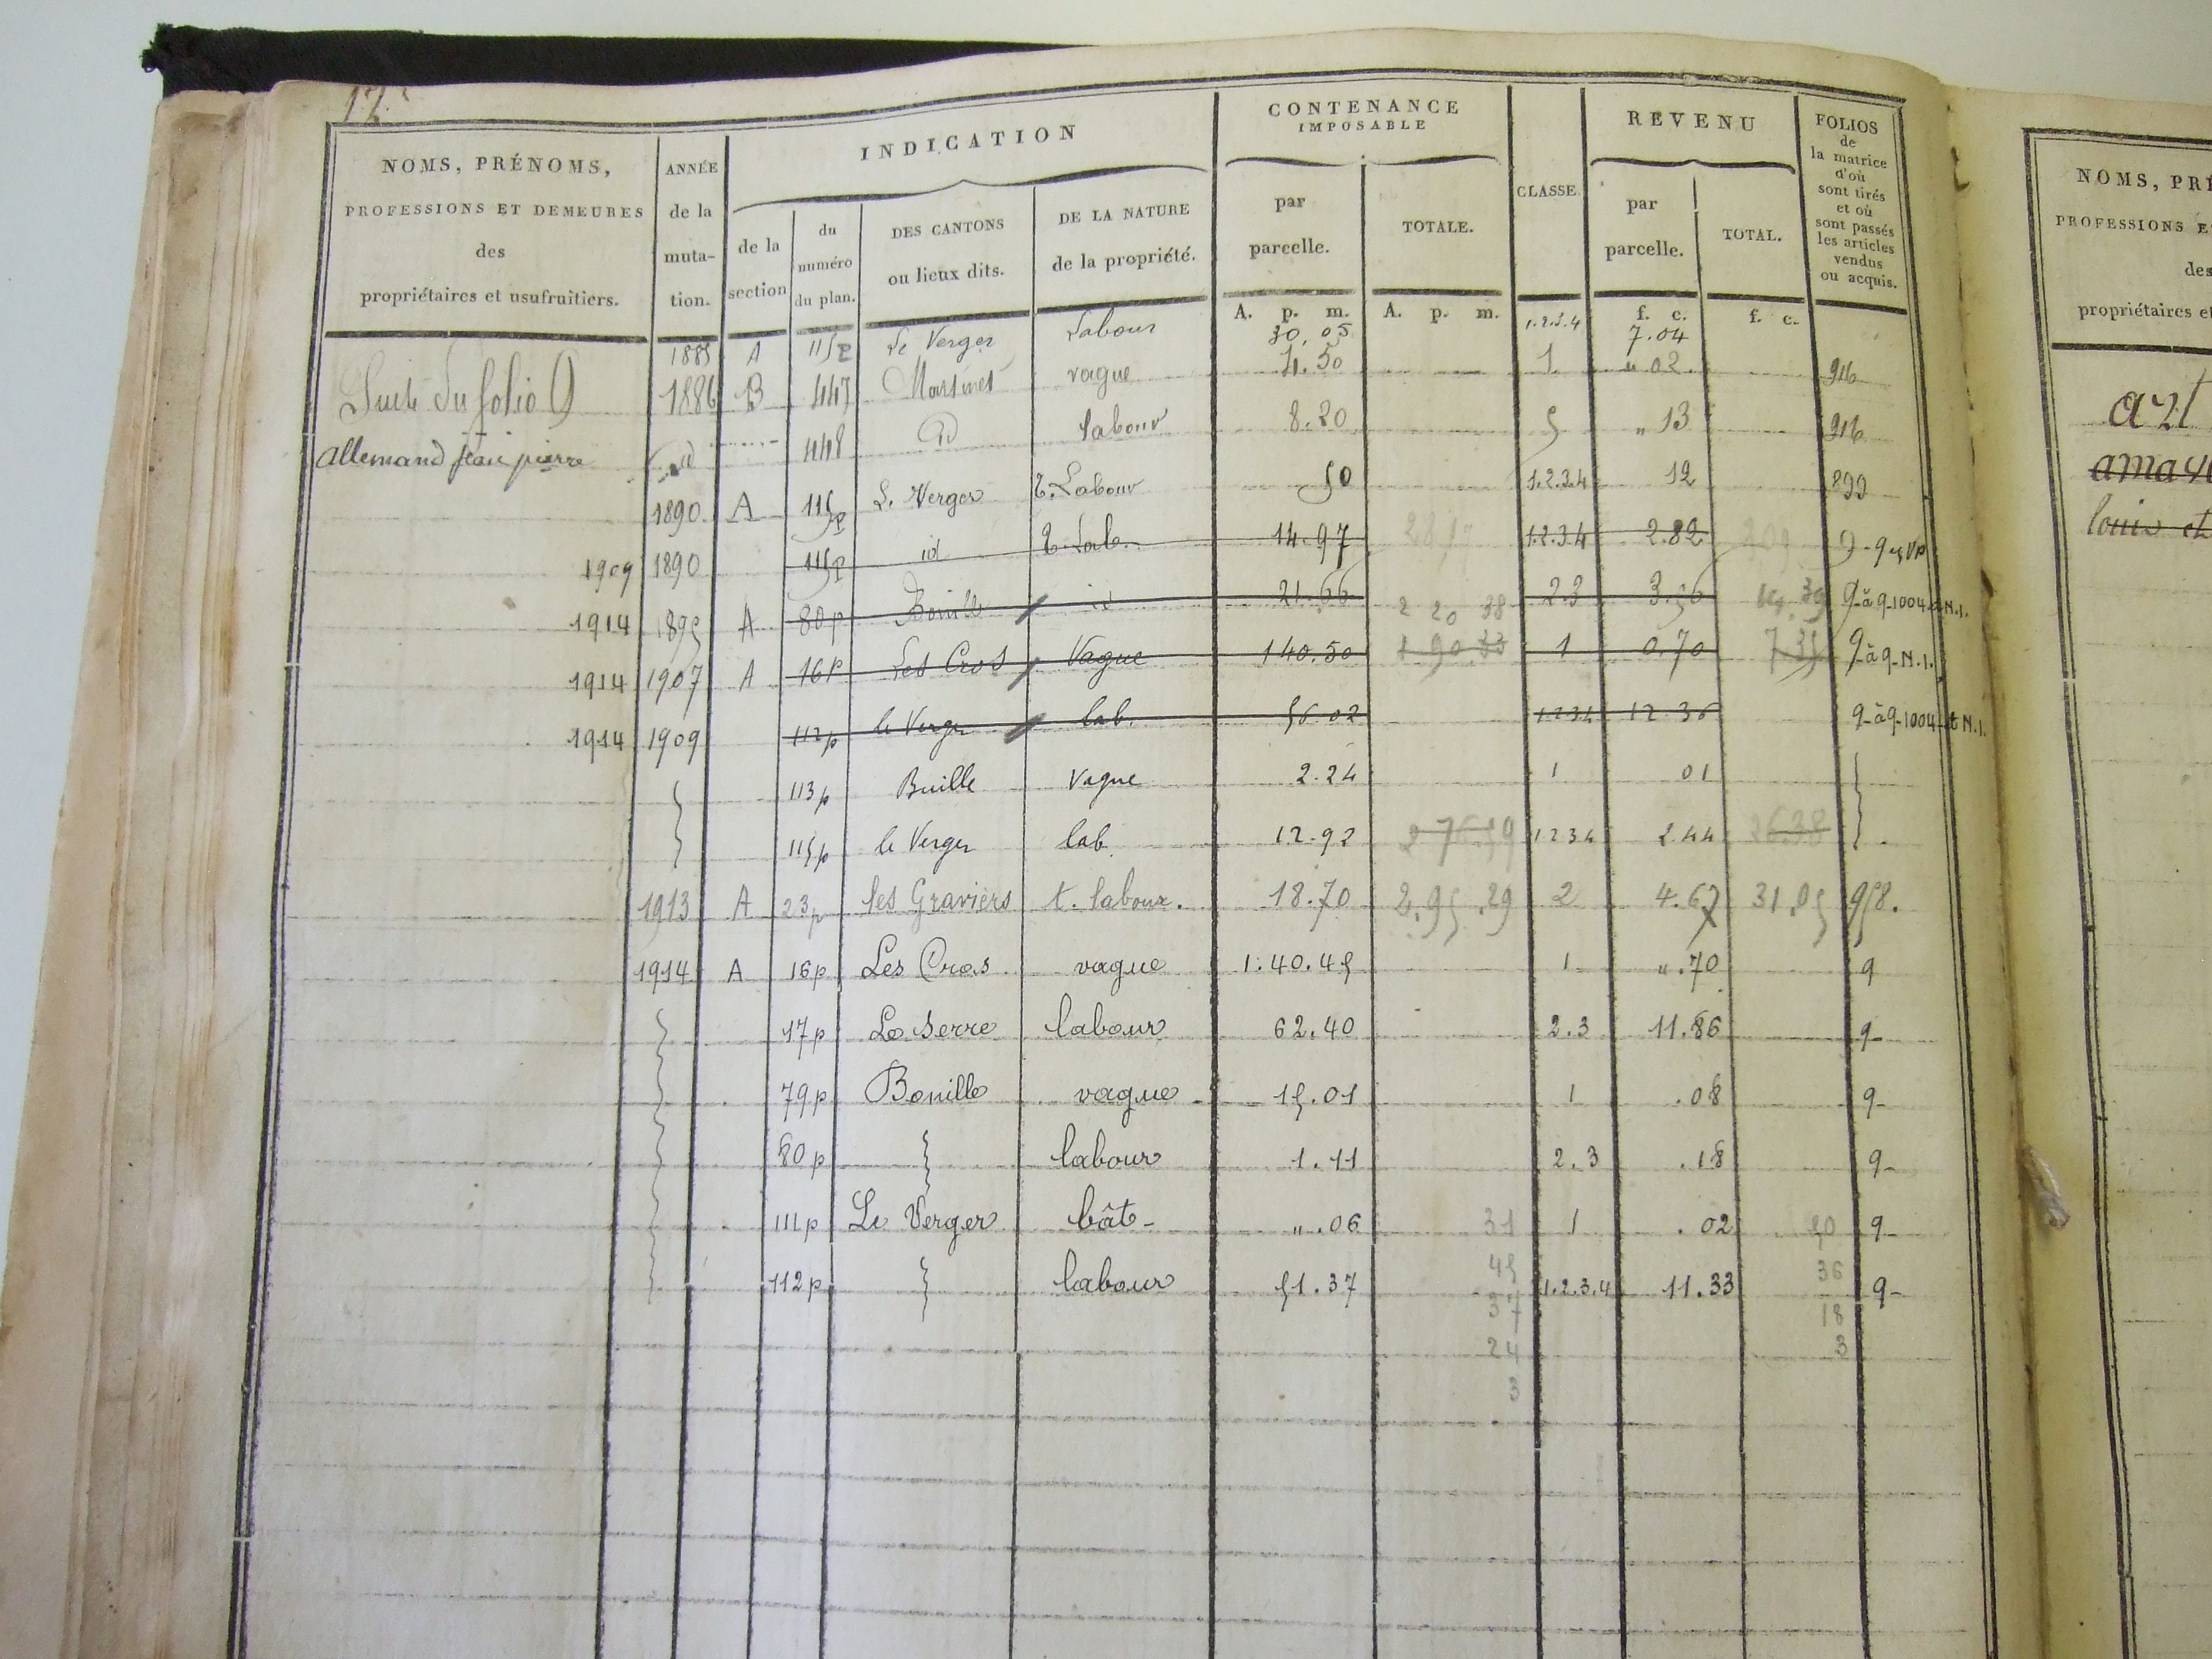 12.
NOMS, PRÉNOMS, PROFESSIONS ET DEMEURES des propriétaires et usufruitiers.
ANNÉE de la muta-tion.
INDICATION
de la section
du numéro du plan.
DES CANTONS ou lieux dits.
DE LA NATURE de la propriété.
CONTENANCE IMPOSABLE
par parcelle.
TOTALE.
CLASSE.
REVENU
par parcelle.
TOTAL.
FOLIOS de la matrice d'où sont tirés et où sont passés les articles vendus ou acquis.
A. p. m. A. p. m. f. c. f. c.
1885 A 115p Le Verger Labour 30.05 1.2.3.4 7.04
Suite du folio 9 1886 B 447 vague 4.50 1 " 02 916
Allemand jean pierre id 448 id labour 8.20 5 " 13 916
1890 A 115p L. Verger t. Labour 50 1.2.3.4 12 899
1909 1890 115p id t. Lab. 14.97 1.2.3.4 2.82
1914 1895 A 80p Bouille id 21.66 2 20 38 2.3 3.56 9-à 9-1004 et N.1.
1914 1907 A 16p Les Cros Vague 140.50 1 90.33 1 0.70 7.35 9-à 9-N.1.
1914 1909 112p le Verger lab. 56.02 1234 12.36 9-à 9-1004 et N.1.
113p Buille Vague 2.24 1 01
115p le Verger lab. 12.92 2 76.59 1234 2.44 26.38
1913 A 23p les Graviers t. labour. 18.70 2.95.29 2 4.67 31.05 958.
1914 A 16p Les Cros vague 1.40.45 1 ".70 9
17p Le Serre labour 62.40 2.3 11.86 9-
79p Bouille vague 15.01 1 .08 9-
80p labour 1.11 2.3 .18 9-
111p Le Verger bât- ".06 31 1 .02 50 9-
112p labour 51.37 45 1.2.3.4 11.33 36 9-
37 18
24 3
3
NOMS, PRÉ
PROFESSIONS E
des
propriétaires et
louis et